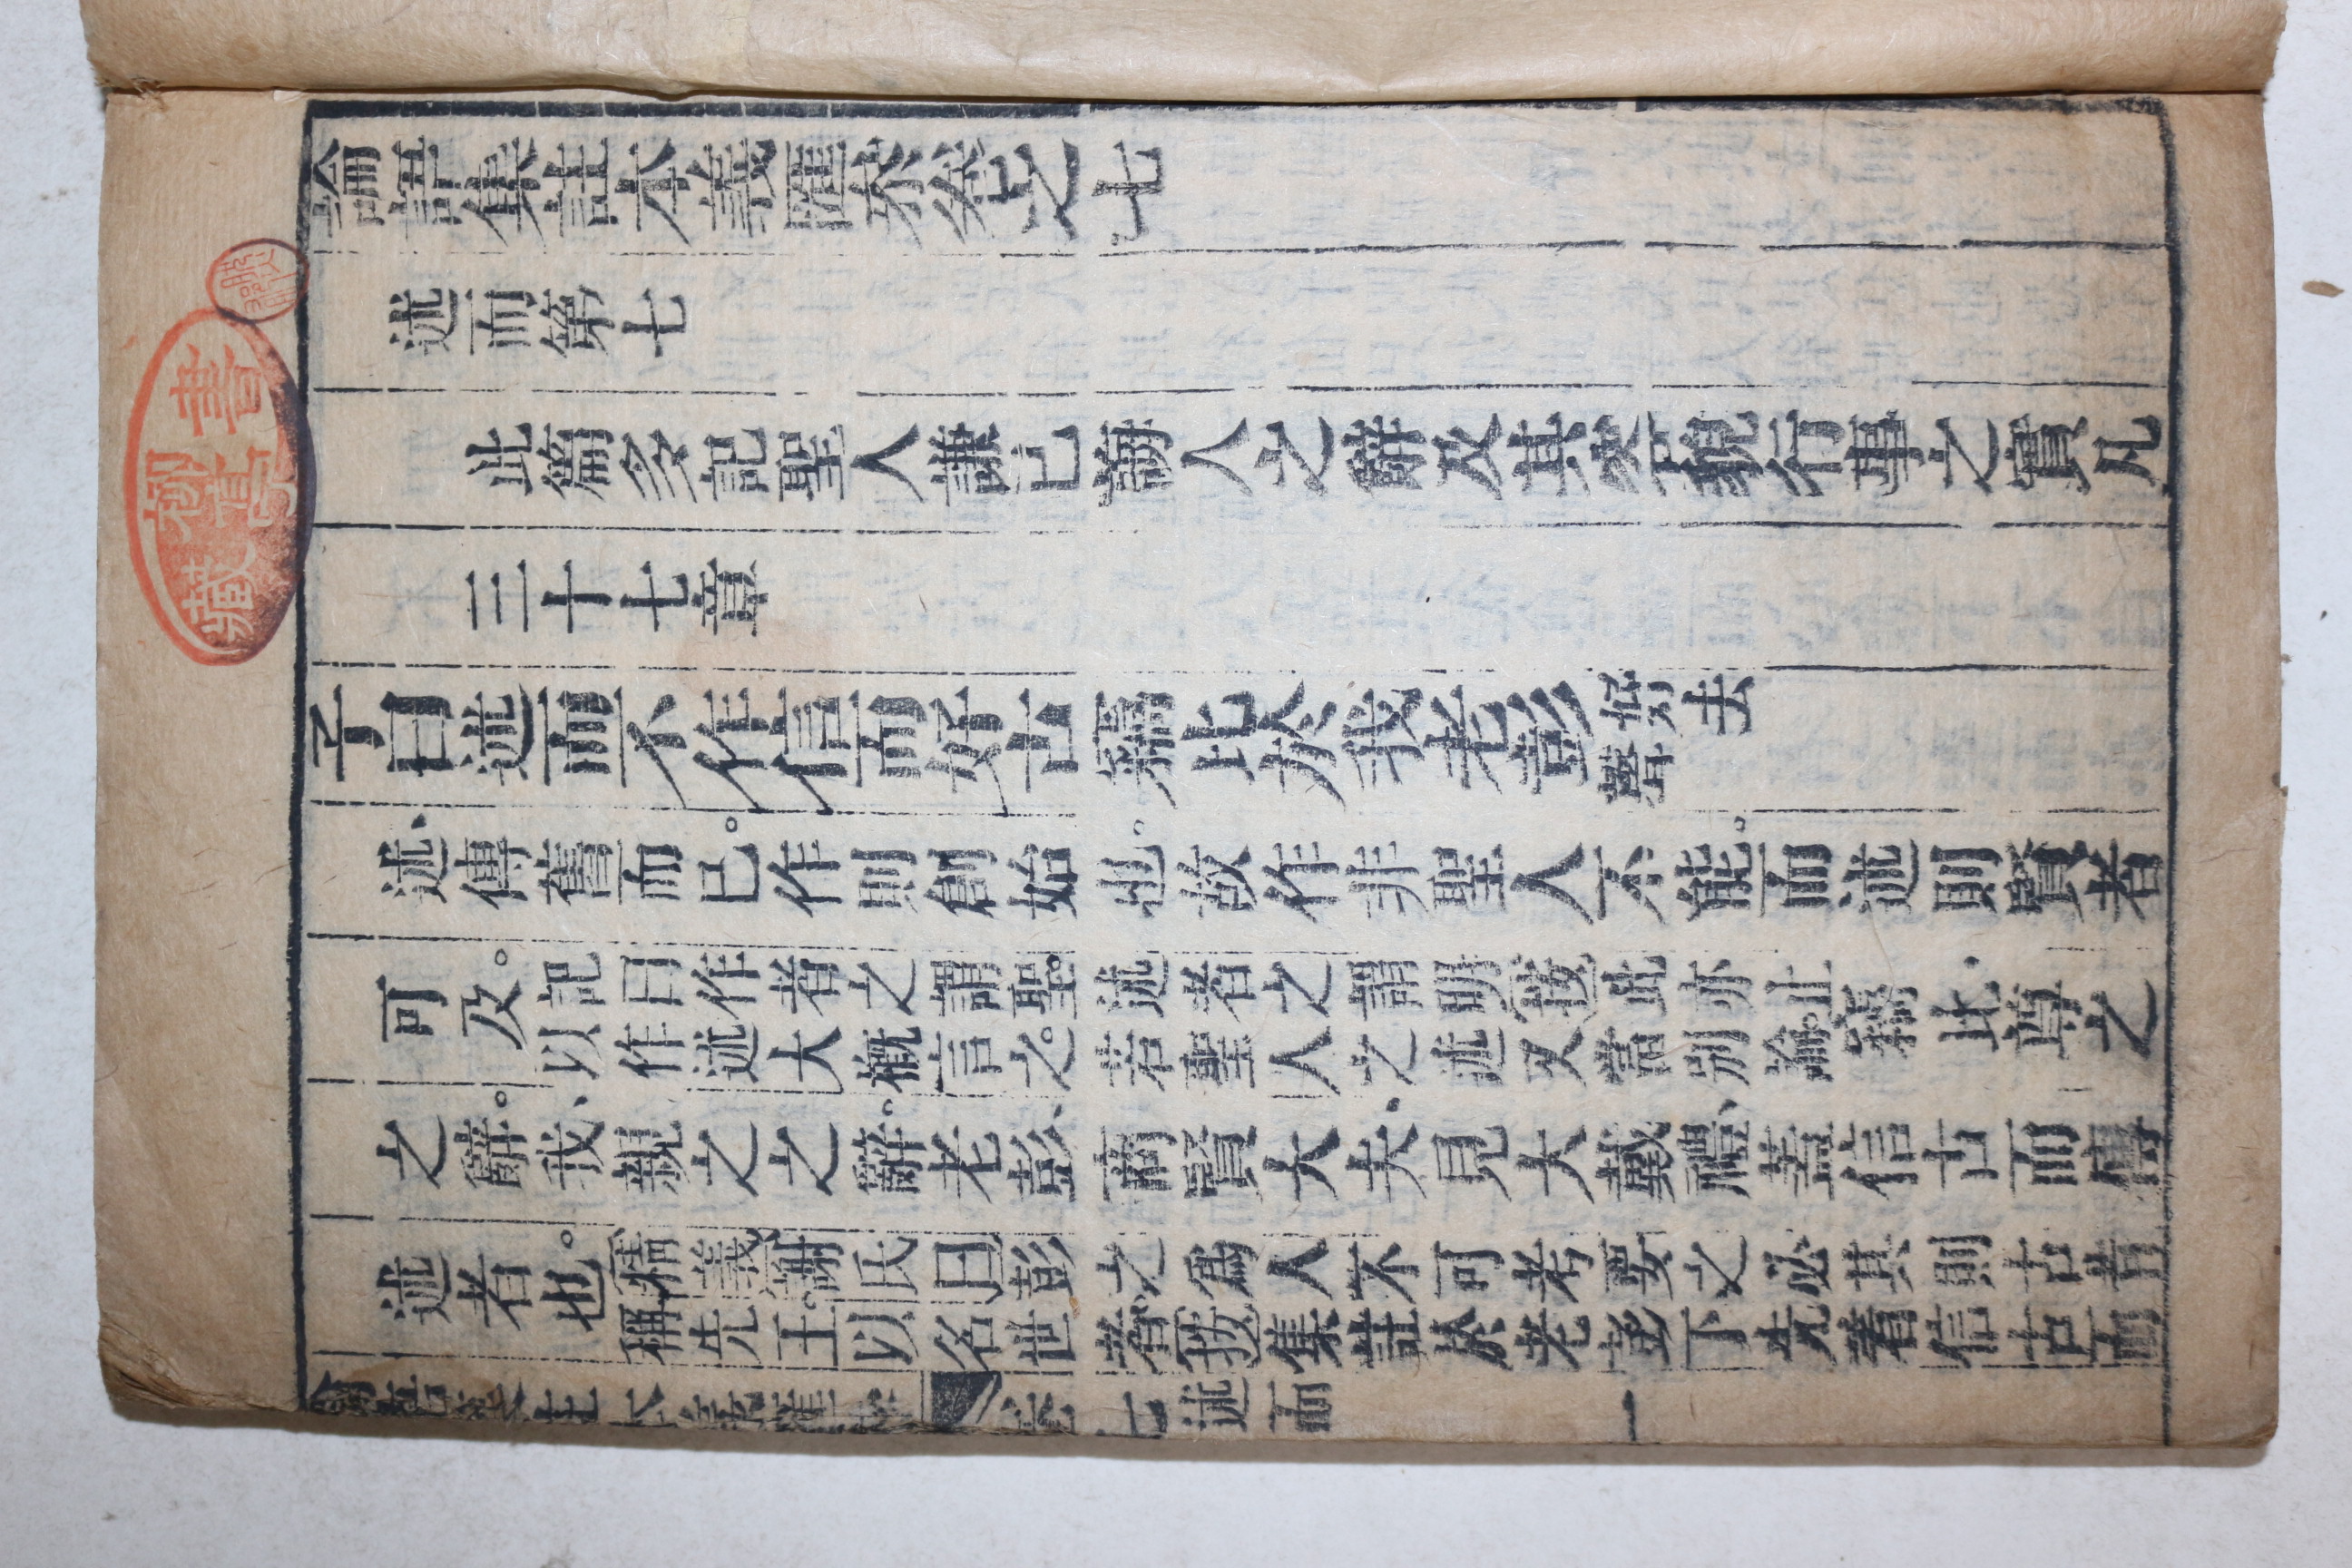 論語集註本義匯叅卷之七
述而第七
此篇多記聖人謙已誨人之辭及其容貌行事之實凡
三十七章
子曰述而不作信而好古竊比於我老彭
好去
聲
述傳舊而已作則創始也故作非聖人不能而述則賢者
可及
記曰作者之謂聖述者之謂明按此亦止
以作述大概言之若聖人之述又當別論
竊比尊之
之辭我親之之辭老彭商賢大夫見大戴禮蓋信古而傳
述者也
精義謝氏曰彭之爲人不可考要之必其則古昔
稱先王以名世者按集註於老彭下先着信古而
論語集註本義匯叅 卷七 述而 一
書
柳亭
藏